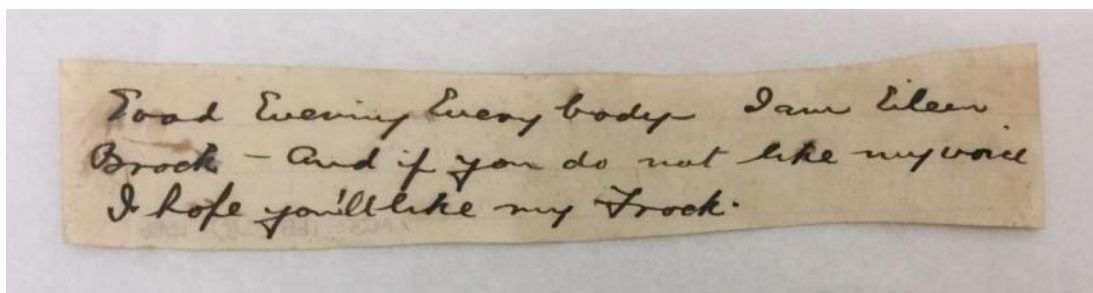 Good Evening Every body I am Eileen
Brock – And if you do not like my voice
I hope you'll like my Frock.